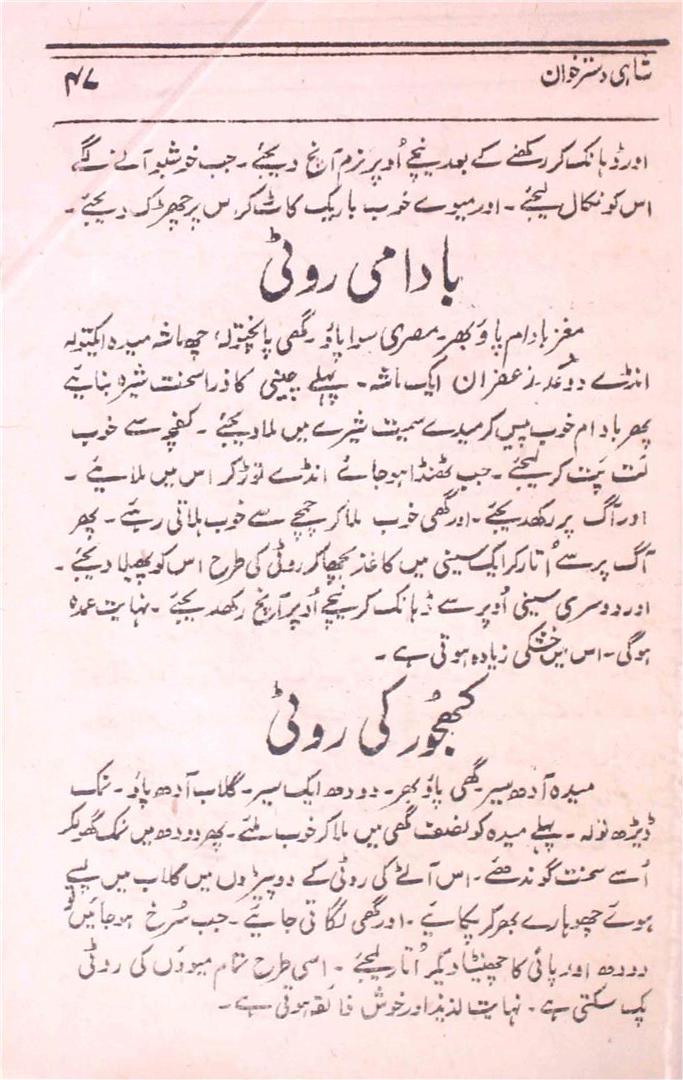 شاہی دسترخوان
۴۷
اور ڈہانک کر رکھنے کے بعد نیچے اُوپر نرم آنچ دیجئے۔ جب خوشبو آنے لگے
اس کو نکال لیجئے۔ اور میوے خوب باریک کاٹ کر اس پر چھڑک دیجئے۔
بادامی روٹی
مغز بادام پاؤ بھر۔ مصری سوا پاؤ۔ گھی پانچتولہ، چھ ماشہ میدہ ایکتولہ
انڈے دو عدد زعفران ایک ماشہ۔ پہلے چینی کا ذرا سخت شیرہ بنایئے
پھر بادام خوب پیس کر میدے سمیت شیرے میں ملا دیجئے۔ کفچہ سے خوب
لت پت کر لیجئے۔ جب ٹھنڈا ہوجائے انڈے توڑ کر اس میں ملایئے۔
اور آگ پر رکھدیجئے۔ اور گھی خوب ملا کر چمچے سے خوب ہلاتی رہئے۔ پھر
آگ پر سے اُتار کر ایک سینی میں کاغذ بچھا کر روٹی کی طرح اس کو پھیلا دیجئے۔
اور دوسری سینی اُوپر سے ڈہانک کر نیچے اُوپر آنچ رکھدیجئے۔ نہایت عمدہ
ہوگی۔ اس میں خشکی زیادہ ہوتی ہے۔
کھجُور کی روٹی
میدہ آدھ سیر گھی پاؤ بھر۔ دودھ ایک سیر۔ گلاب آدھ پاؤ۔ نمک
ڈیڑھ تولہ۔ پہلے میدہ کو نصف گھی میں ملا کر خوب ملئے۔ پھر دودھ میں نمک گھولکر
اُسے سخت گوندھئے۔ اس آٹے کی روٹی کے دو پیڑوں میں گلاب میں پسے
ہوئے چھوہارے بھر کر پکایئے۔ اور گھی لگاتی جایئے۔ جب سُرخ ہوجائیں تو
دودھ اور پانی کا چھینٹا دیگر اُتار لیجئے۔ اسی طرح تمام میوؤں کی روٹی
پک سکتی ہے۔ نہایت لذیذ اور خوش ذائقہ ہوتی ہے۔